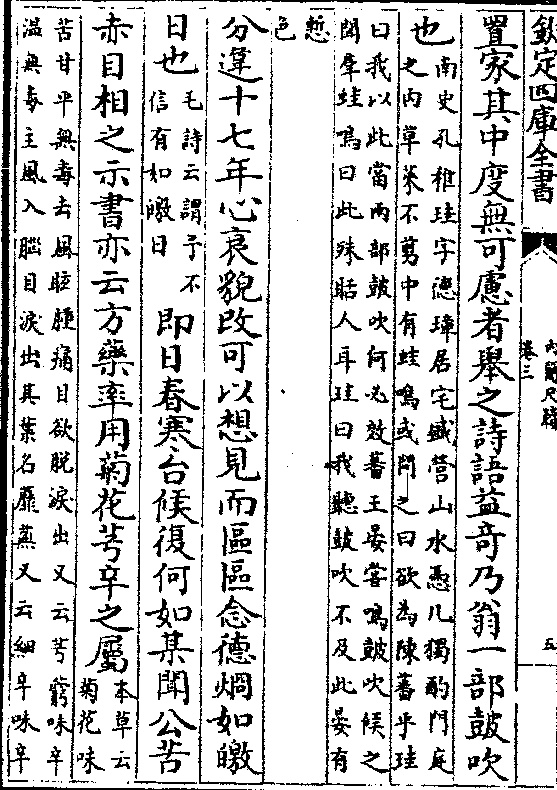 欽定四庫全書
內簡尺牘
卷三
五
置家其中度無可慮者舉之詩語益竒乃翁一部鼓吹
也
南史孔稚珪字德璋居宅盛營山水憑几獨酌門庭
之内草萊不剪中有蛙鳴或問之曰欲為陳蕃乎珪
曰我以此當兩部鼓吹何必效蕃王晏嘗鳴鼓吹候之
聞羣蛙鳴曰此殊聒人耳珪曰我聽鼓吹不及此晏有
慙
色
分違十七年心衰貌改可以想見而區區念德烱如皦
日也
毛詩云謂予不
信有如皦日
即日春寒台候復何如某聞公苦
赤目相之示書亦云方藥率用菊花芎辛之屬
本草云
菊花味
苦甘平無毒去風眩腫痛目欲脱淚出又云芎藭味辛
温無毒主風入腦目淚出其葉名蘼蕪又云細辛味辛